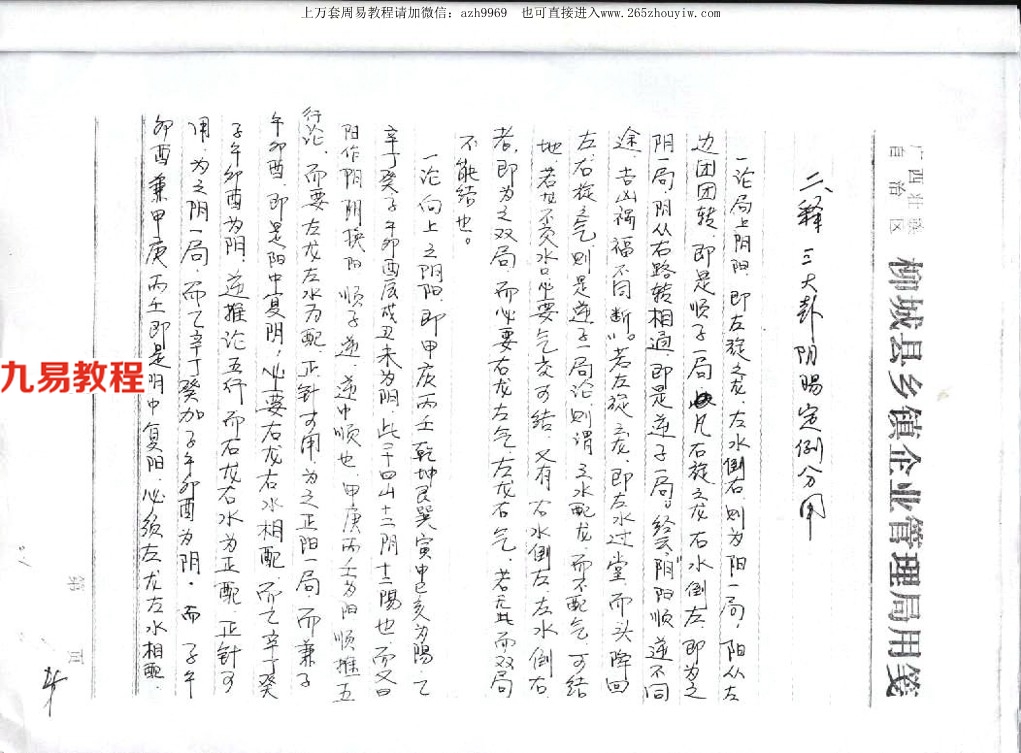 上万套周易教程请加微信：azh9969　也可直接进入www.265zhouyiw.com
广西壮族
自治区
柳城县乡镇企业管理局用笺
二、释三大卦阴陽定例分用
一论局上阴阳，即左旋之龙，左水倒右，则为阳一局，阳从左
边团团转，即是顺子一局，凡右旋之龙右水倒左，即为之
阴一局阴从右路转相通，即是逆子一局。经云"阴"阳顺逆不同
途，吉凶祸福不同断。若左旋之龙，即左水过堂而头降回
左，右旋之气，则是逆子一局论则谓之水配龙，而不配气可结
地，若左不交水口必要气交可结，又有右水倒左，左水倒右
者，即为之双局，而必要右龙左气，左龙右气，若无此而双局
不能结也。
一论向上之阴阳，即甲庚丙壬乾坤艮巽寅申巳亥为陽乙
辛丁癸子午卯酉辰戌丑未为阴，此二十四山十二阴十二陽也，而又曰
阳作阴，阴换阳，顺子逆，逆中顺也，甲庚丙壬为阳顺推五
行论，而要左龙左水为配，正针可用，为之正阳一局，而兼子
午卯酉，即是阳中复阴，必要右龙右水相配，而乙辛丁癸
子午卯酉为阴，逆推论五行而右龙右水为正配，正针可
用，为之阴一局，而乙辛丁癸加子午卯酉为阴，而子午
卯酉兼甲庚丙壬即是阴中复阳，必须左龙左水相配，
第　页
九易教程